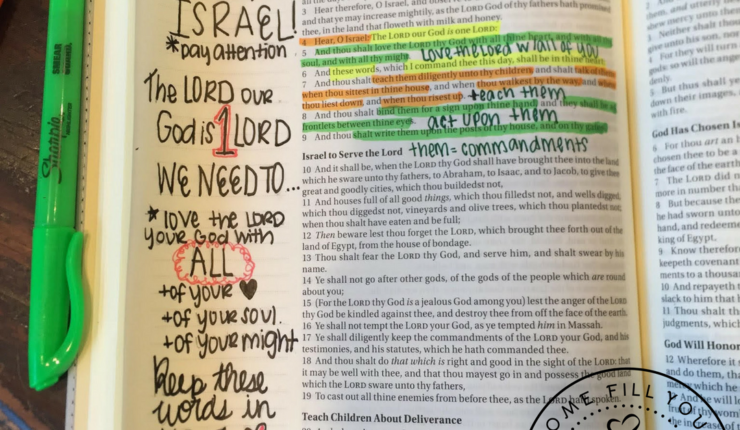 ISRAEL!
*pay attention
The LORD our
God is 1 LORD
WE NEED TO...
*love the LORD
your God with
ALL
+of your ♥
+of your soul.
+of your might
Keep these
words in
Sharpie
SMEAR
3 Hear therefore, O Israel, and observe
and that ye may increase mightily, as the LORD God of thy fathers hath promised
thee, in the land that floweth with milk and honey.
4 Hear, O Israel: The LORD our God is one LORD:
5 And thou shalt love the LORD thy God with all thine heart, and with all thy
soul, and with all thy might.
Love the Lord w/all of you
6 And these words, which I command thee this day, shall be in thine heart:
7 And thou shalt teach them diligently unto thy children, and shalt talk of them
when thou sittest in thine house, and when thou walkest by the way, and when
thou liest down, and when thou risest up.
teach them
8 And thou shalt bind them for a sign upon thine hand, and they shall be as
frontlets between thine eyes.
act upon them
9 And thou shalt write them upon the posts of thy house, and on thy gates.
them = commandments
Israel to Serve the Lord
10 And it shall be, when the LORD thy God shall have brought thee into the land
which he sware unto thy fathers, to Abraham, to Isaac, and to Jacob, to give thee
great and goodly cities, which thou buildedst not,
11 And houses full of all good things, which thou filledst not, and wells digged,
which thou diggedst not, vineyards and olive trees, which thou plantedst not;
when thou shalt have eaten and be full;
12 Then beware lest thou forget the LORD, which brought thee forth out of the
land of Egypt, from the house of bondage.
13 Thou shalt fear the LORD thy God, and serve him, and shalt swear by his
name.
14 Ye shall not go after other gods, of the gods of the people which are round
about you;
15 (For the LORD thy God is a jealous God among you) lest the anger of the LORD
thy God be kindled against thee, and destroy thee from off the face of the earth.
16 Ye shall not tempt the LORD your God, as ye tempted him in Massah.
17 Ye shall diligently keep the commandments of the LORD your God, and his
testimonies, and his statutes, which he hath commanded thee.
18 And thou shalt do that which is right and good in the sight of the LORD: that
it may be well with thee, and that thou mayest go in and possess the good land
which the LORD sware unto thy fathers,
19 To cast out all thine enemies from before thee, as the LORD hath spoken.
Teach Children About Deliverance
God Has Chosen
6 For thou art an
chosen thee to be a
the face of the earth
7 The LORD did n
more in number tha
8 But because the
he had sworn unto
hand, and redeeme
king of Egypt.
9 Know therefore
keepeth covenant
ments to a thousan
10 And repayeth t
slack to him that h
11 Thou shalt th
judgments, which
God Will Honor
12 Wherefore it s
and do them, tha
which he
he will lo
OME FILL YO